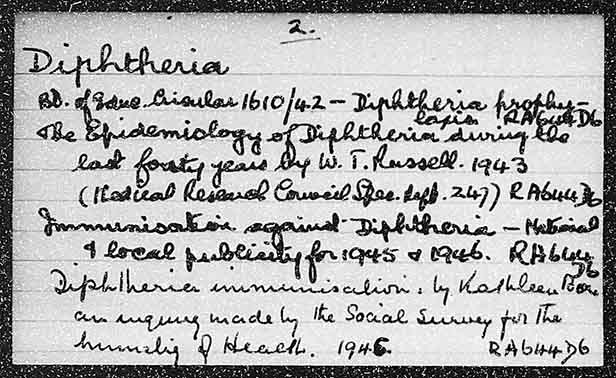 2.
Diphtheria
Bd. of Educ. Circular 1610/42 - Diphtheria prophy-
laxis RA644D6
The Epidemiology of Diphtheria during the
last forty years by W. T. Russell. 1943
(Medical Research Council Spec. Rept. 247) RA644D6
Immunisation against Diphtheria - National
& local publicity for 1945 & 1946. RA644
D6
Diphtheria immunisation. by Kathleen Box
an inquiry made by the Social Survey for the
Ministry of Health. 1945 RA644D6